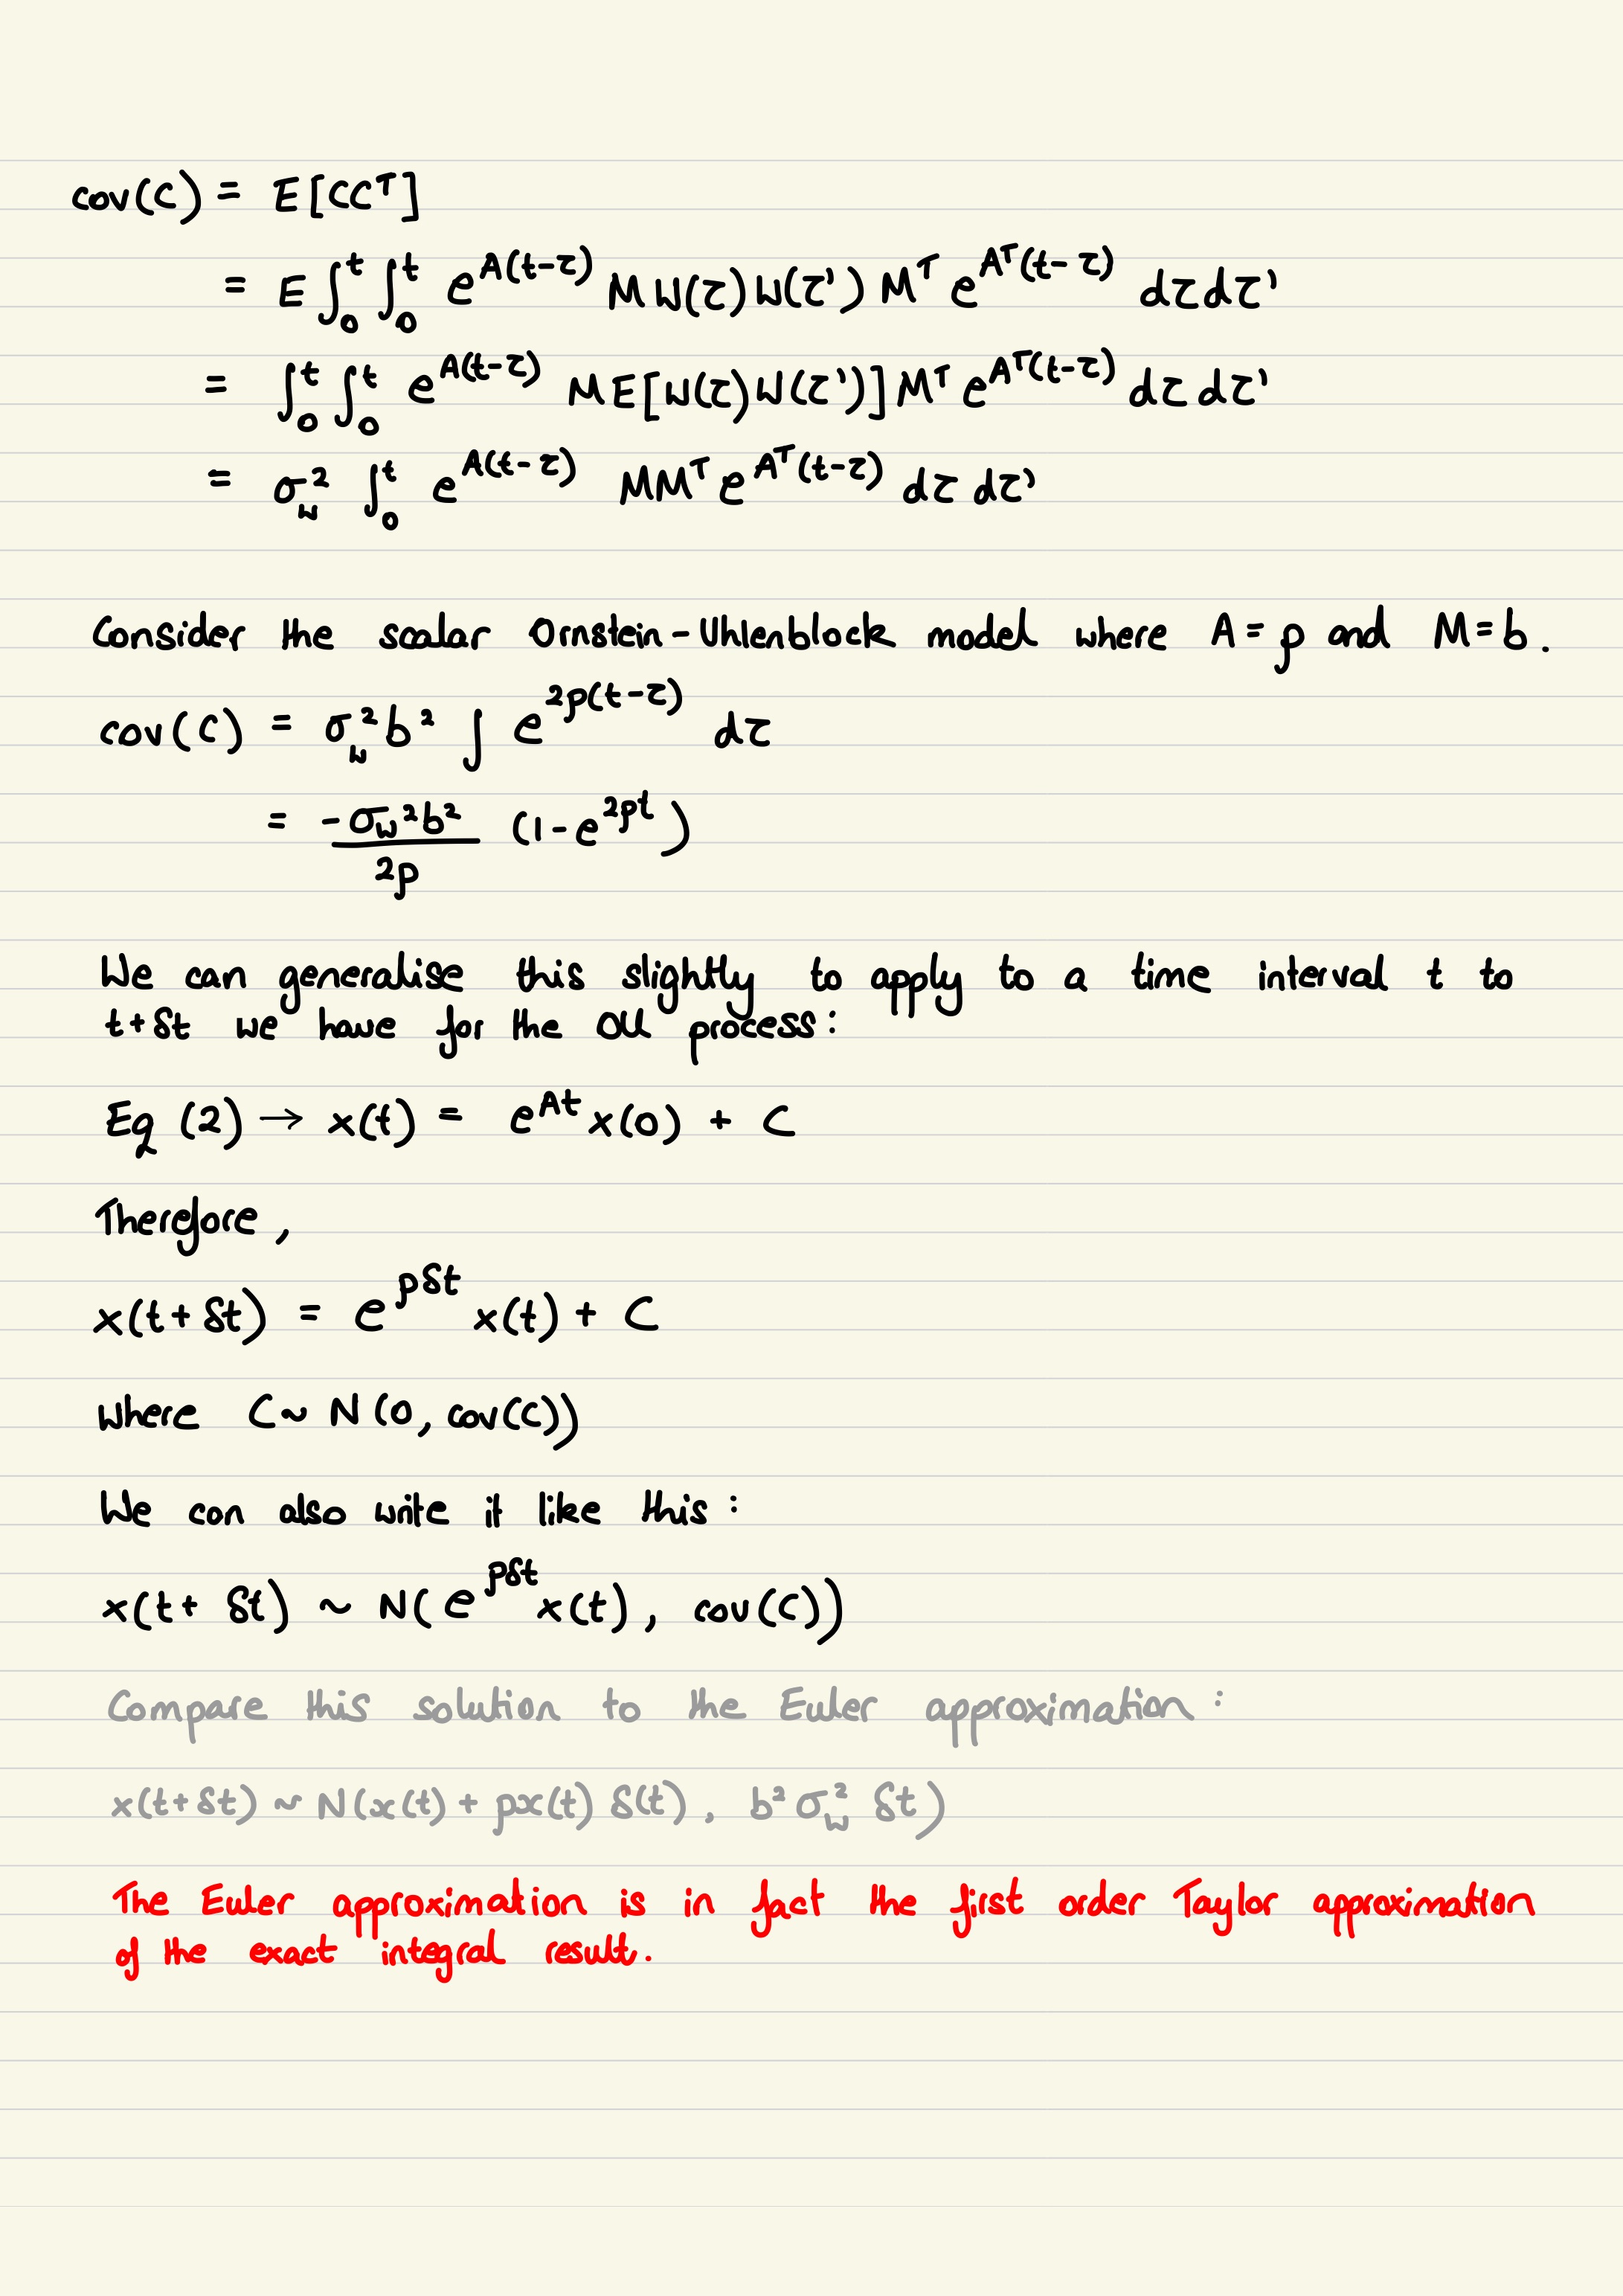 cov(C) = E[CCᵀ]
= E∫₀ᵗ ∫₀ᵗ e^{A(t-τ)} M W(τ) W(τ') Mᵀ e^{Aᵀ(t-τ)} dτ dτ'
= ∫₀ᵗ ∫₀ᵗ e^{A(t-τ)} M E[W(τ) W(τ')] Mᵀ e^{Aᵀ(t-τ)} dτ dτ'
= σ_w² ∫₀ᵗ e^{A(t-τ)} MMᵀ e^{Aᵀ(t-τ)} dτ dτ'
Consider the scalar Ornstein-Uhlenblock model where A = p and M = b.
cov(C) = σ_w² b² ∫ e^{2p(t-τ)} dτ
= \frac{-σ_w² b²}{2p} (1 - e^{2pt})
We can generalise this slightly to apply to a time interval t to
t+δt we have for the OU process:
Eq (2) → x(t) = e^{At} x(0) + C
Therefore,
x(t+δt) = e^{pδt} x(t) + C
where C ~ N(0, cov(C))
We can also write it like this:
x(t+ δt) ~ N(e^{pδt} x(t), cov(C))
Compare this solution to the Euler approximation:
x(t+δt) ~ N(x(t) + px(t) δ(t), b² σ_w² δt)
The Euler approximation is in fact the first order Taylor approximation
of the exact integral result.